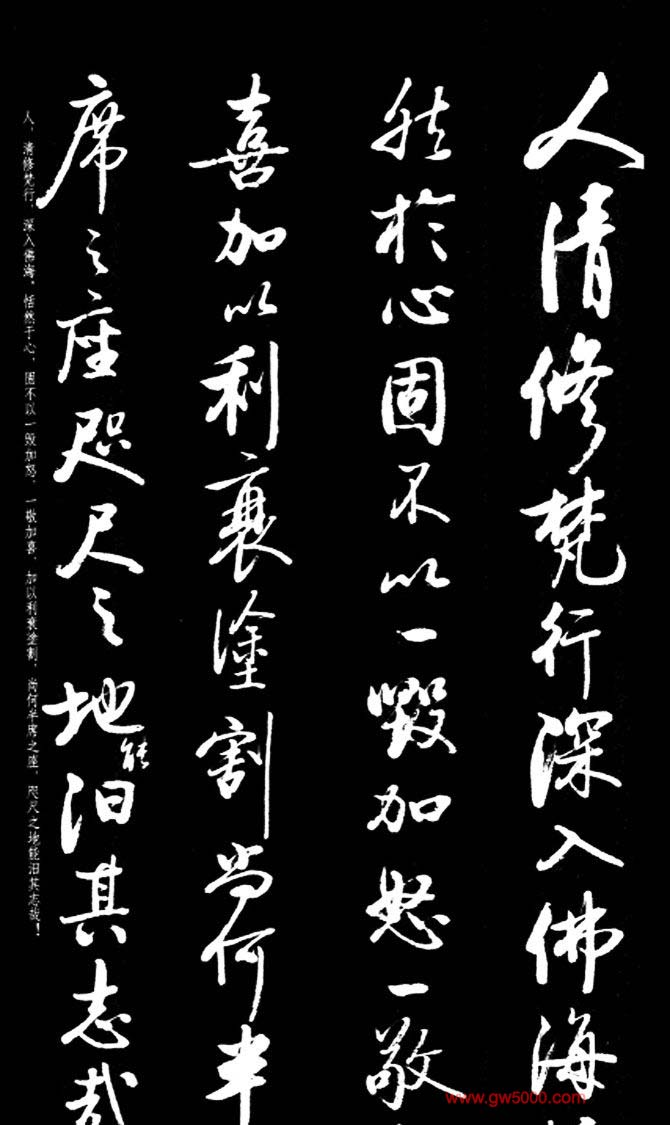 人清修梵行深入佛海
然於心固不以一毀加怒一敬
喜加以利衰塗割尚何半
席之座咫尺之地能汩其志哉
人，清修梵行，深入佛海，恬然于心，固不以一毁加怒，一敬加喜，加以利衰塗割，尚何半席之座，咫尺之地能汩其志哉！
www.gw5000.com